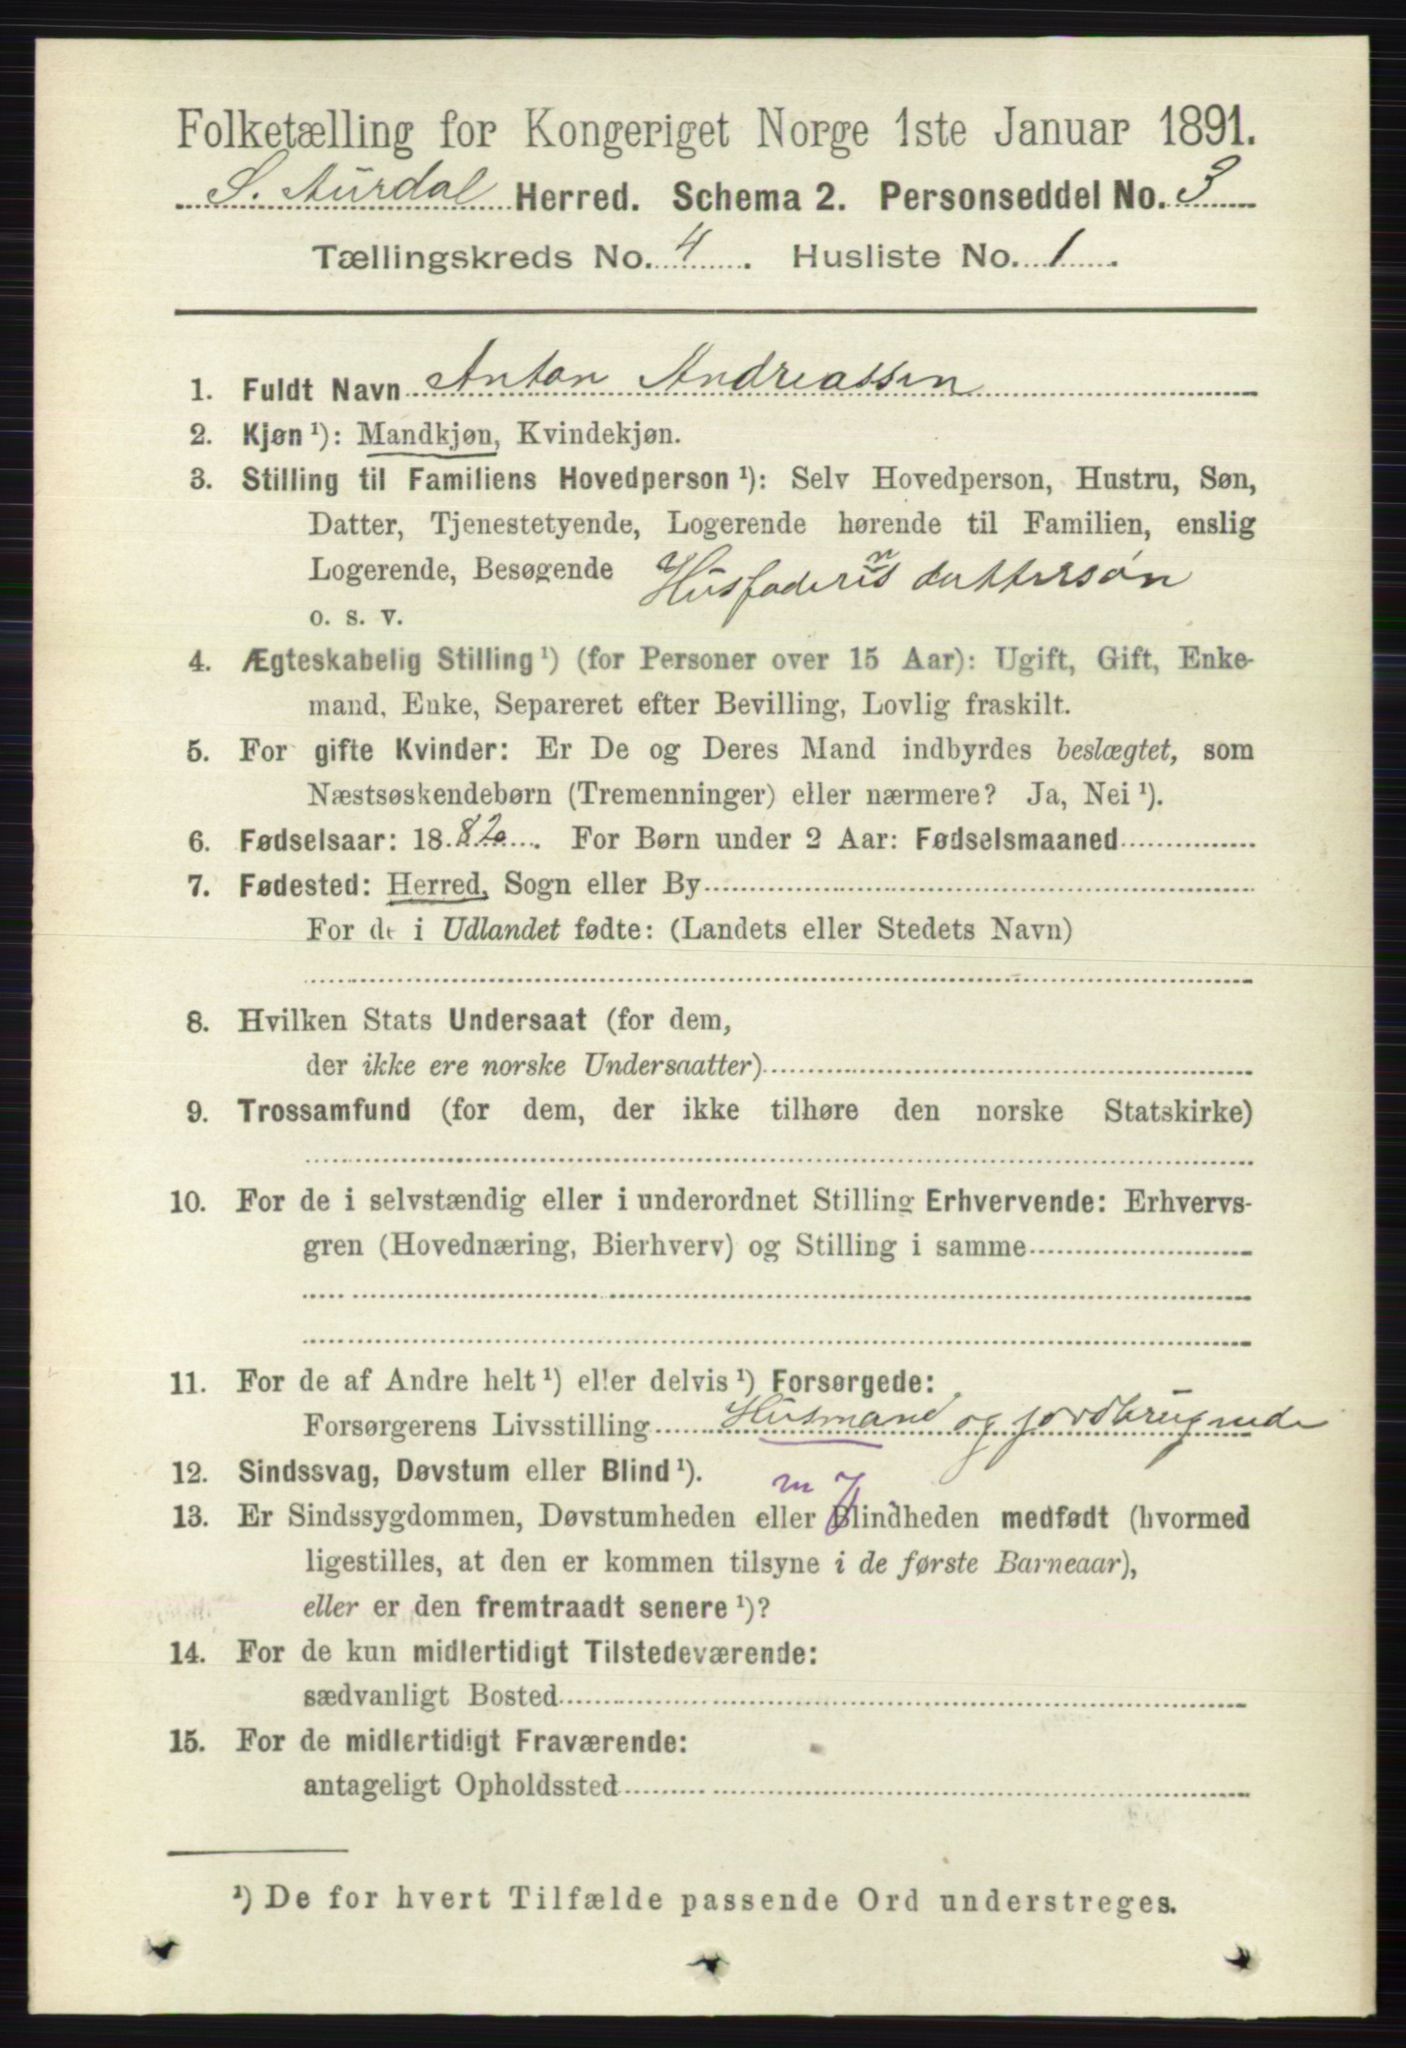 Folketælling for Kongeriget Norge 1ste Januar 1891.
S. Aurdal Herred. Schema 2. Personseddel No. 3
Tællingskreds No. 4. Husliste No. 1.
1. Fuldt Navn Anton Andreassen
2. Kjøn¹): Mandkjøn, Kvindekjøn.
3. Stilling til Familiens Hovedperson¹): Selv Hovedperson, Hustru, Søn,
Datter, Tjenestetyende, Logerende hørende til Familien, enslig
Logerende, Besøgende Husfaderens dattersøn
o. s. v.
4. Ægteskabelig Stilling¹) (for Personer over 15 Aar): Ugift, Gift, Enke-
mand, Enke, Separeret efter Bevilling, Lovlig fraskilt.
5. For gifte Kvinder: Er De og Deres Mand indbyrdes beslægtet, som
Næstsøskendebørn (Tremenninger) eller nærmere? Ja, Nei¹).
6. Fødselsaar: 1882. For Børn under 2 Aar: Fødselsmaaned
7. Fødested: Herred, Sogn eller By
For de i Udlandet fødte: (Landets eller Stedets Navn)
8. Hvilken Stats Undersaat (for dem,
der ikke ere norske Undersaatter)
9. Trossamfund (for dem, der ikke tilhøre den norske Statskirke)
10. For de i selvstændig eller i underordnet Stilling Erhvervende: Erhvervs-
gren (Hovednæring, Bierhverv) og Stilling i samme
11. For de af Andre helt¹) eller delvis¹) Forsørgede:
Forsørgerens Livsstilling Husmand og jordbrugende
12. Sindssvag, Døvstum eller Blind¹). m 7
13. Er Sindssygdommen, Døvstumheden eller Blindheden medfødt (hvormed
ligestilles, at den er kommen tilsyne i de første Barneaar),
eller er den fremtraadt senere¹)?
14. For de kun midlertidigt Tilstedeværende:
sædvanligt Bosted
15. For de midlertidigt Fraværende:
antageligt Opholdssted
¹) De for hvert Tilfælde passende Ord understreges.